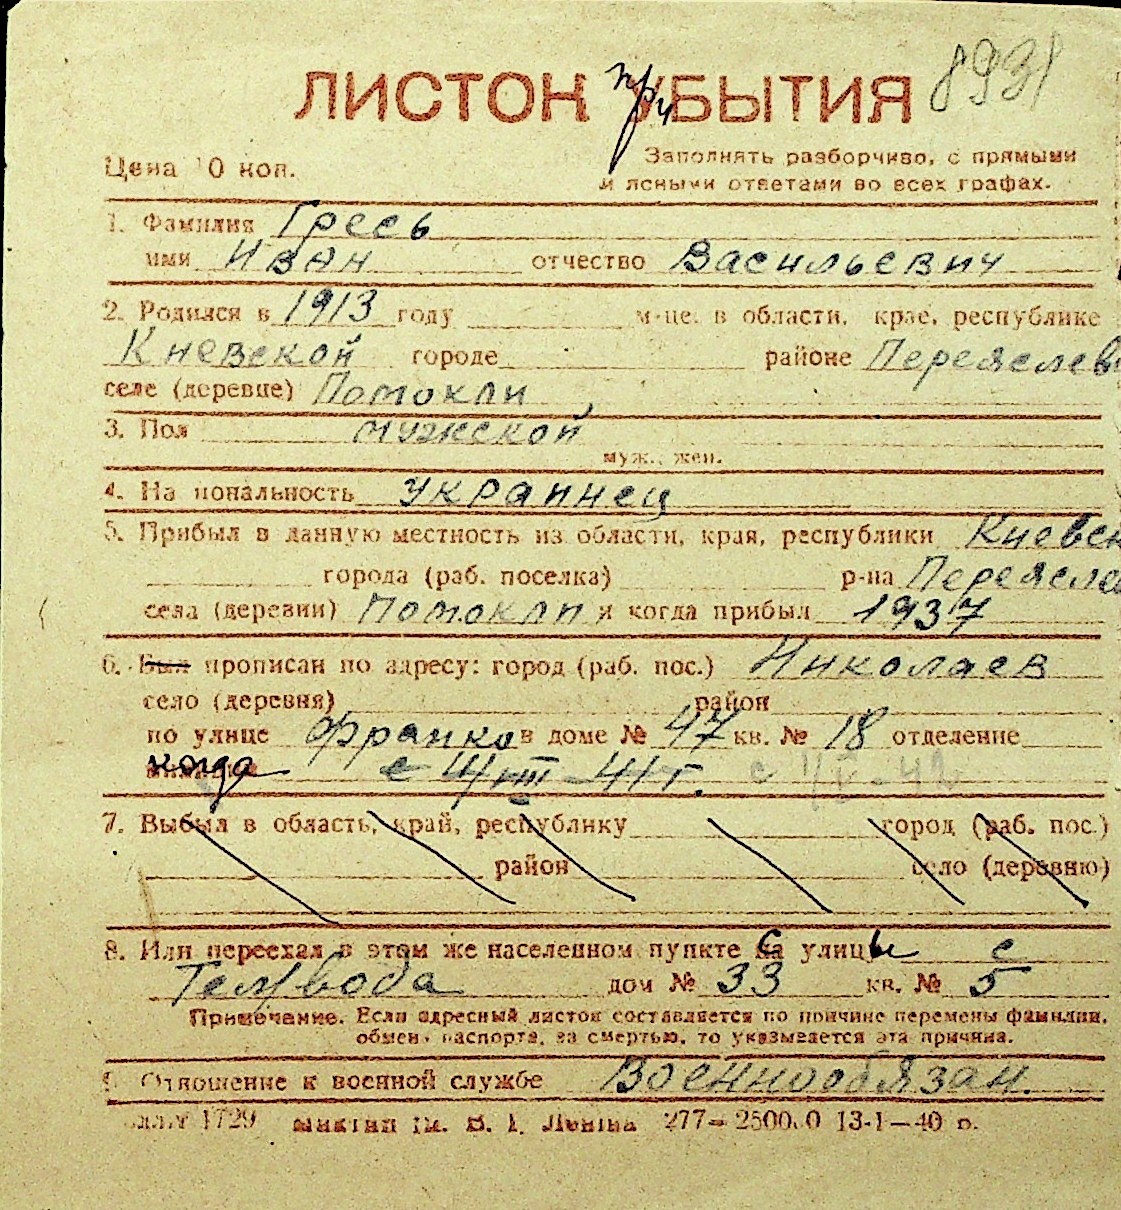 ЛИСТОК УБЫТИЯ при 8931
Цена 10 коп.
Заполнять разборчиво, с прямыми
и ясными ответами во всех графах.
1. Фамилия Гресь
имя Иван отчество Васильевич
2. Родился в 1913 году м-це, в области, крае, республике
Киевской городе районе Переяслев
селе (деревне) Потокли
3. Пол мужской
муж., жен.
4. Национальность украинец
5. Прибыл в данную местность из области, края, республики Киевск
города (раб. поселка) р-на Переясла
села (деревни) Потокли и когда прибыл 1937
6. Был прописан по адресу: город (раб. пос.) Николаев
село (деревня) район
по улице Франко в доме № 47 кв. № 18 отделение
когда
7. Выбыл в область, край, республику город (раб. пос.)
район село (деревню)
8. Или переехал в этом же населенном пункте са улицы с
дом № 33 кв. № 5
Примечание. Если адресный листок составляется по причине перемены фамилии,
обмена паспорта, за смертью, то указывается эта причина.
9. Отношение к военной службе Военнообязан.
1729 им. В. І. Леніна 277—25000 13-1—40 р.